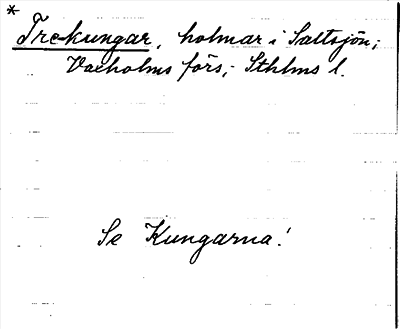 *
Tre-kungar, holmar i Saltsjön;
Vaxholms förs; Sthlms l.
Se Kungarna!